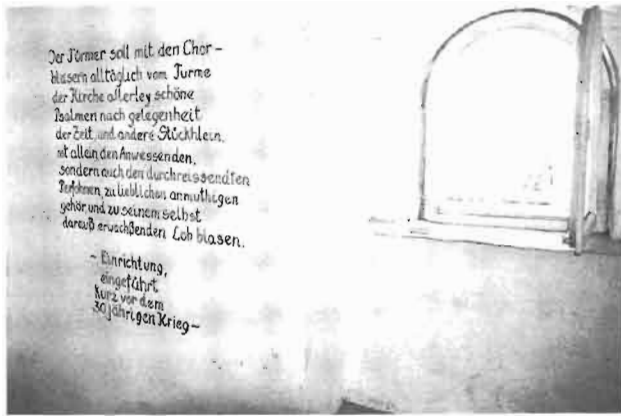 Der Törmer soll mit den Chor-
blasern alltäglich vom Turme
der Kirche allerley schöne
Psalmen nach gelegenheit
der Zeit und andere Stückhlein,
nt allein den Anwessenden,
sondern auch den durchreissendten
Persohnen, zu lieblichen anmuthigen
gehör, und zu seinem selbst
darauß erwachßenden Lob blasen.
- Einrichtung,
eingeführt
kurz vor dem
30jährigen Krieg -